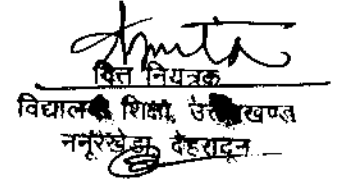 वित्त नियंत्रक
विद्यालयी शिक्षा, उत्तराखण्ड
ननूरखेडा देहरादून